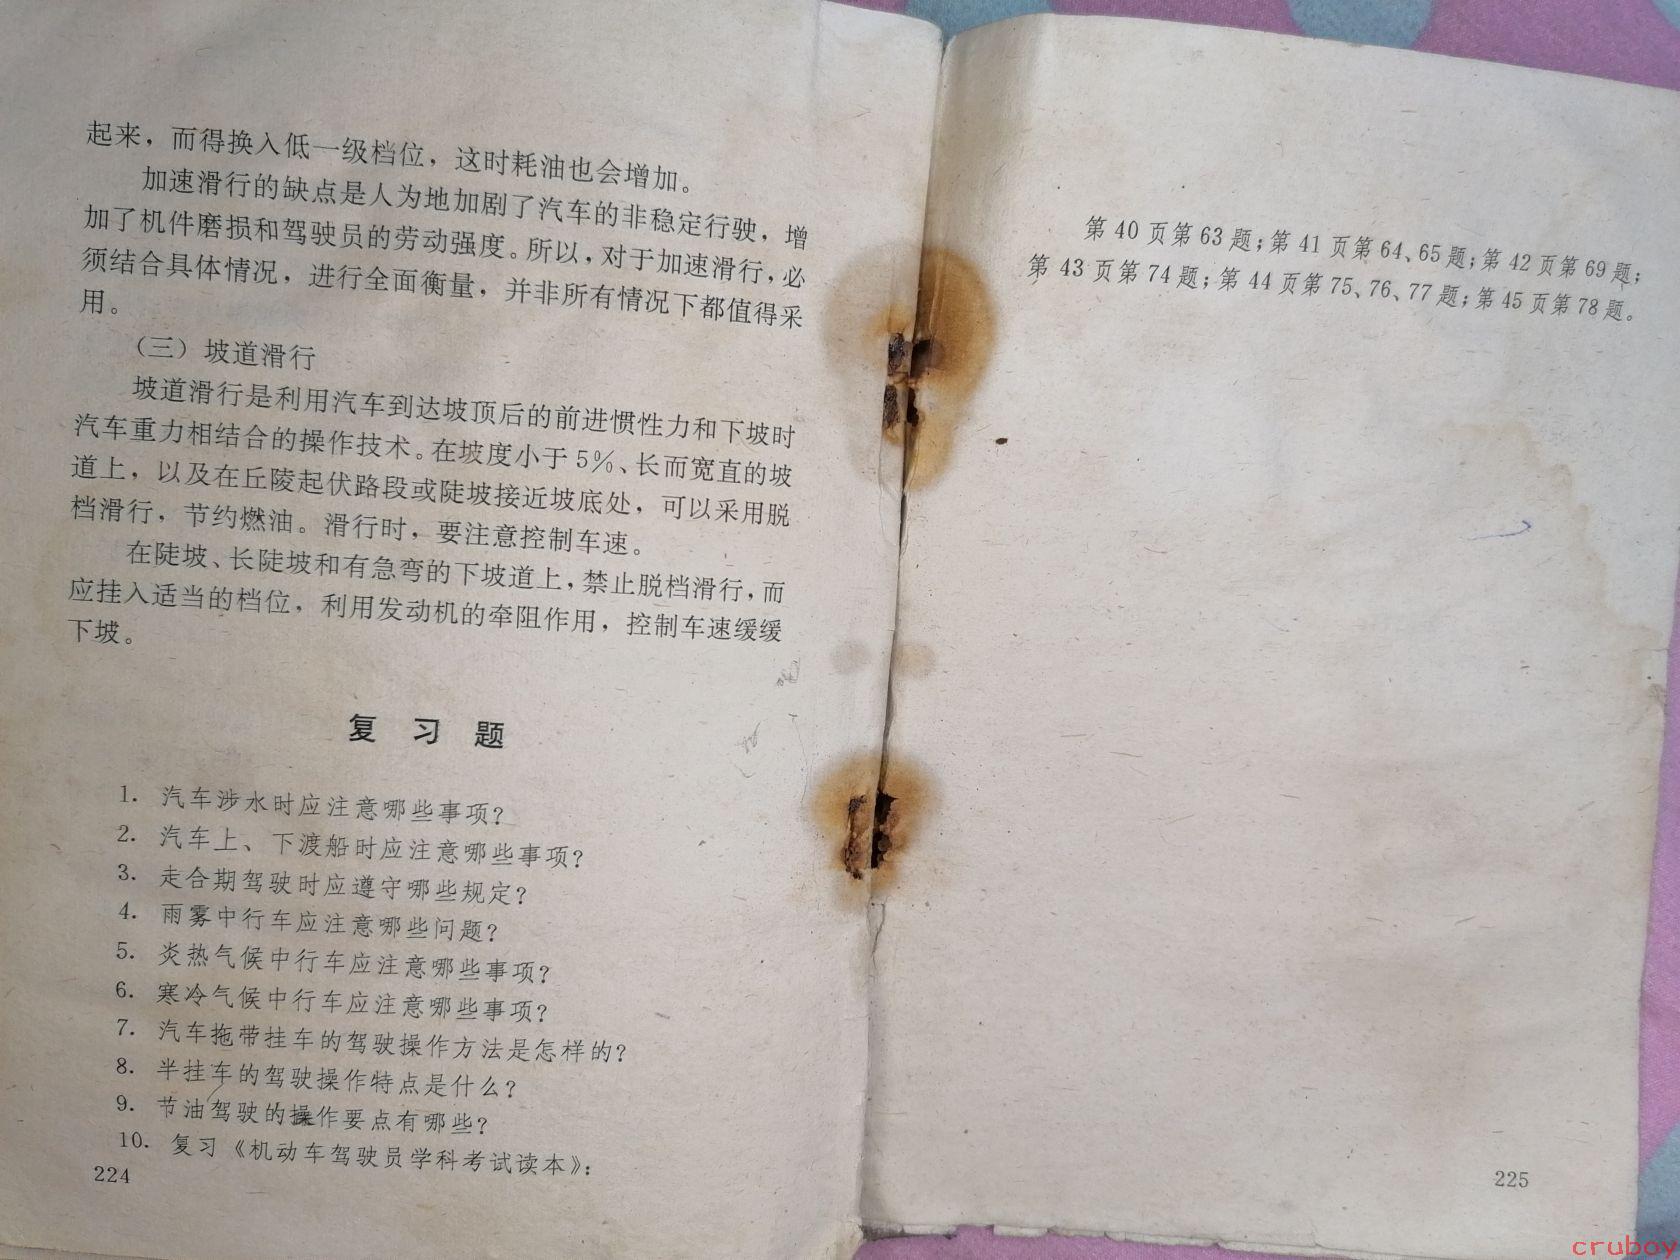 起来，而得换入低一级档位，这时耗油也会增加。
加速滑行的缺点是人为地加剧了汽车的非稳定行驶，增
加了机件磨损和驾驶员的劳动强度。所以，对于加速滑行，必
须结合具体情况，进行全面衡量，并非所有情况下都值得采
用。
（三）坡道滑行
坡道滑行是利用汽车到达坡顶后的前进惯性力和下坡时
汽车重力相结合的操作技术。在坡度小于5%、长而宽直的坡
道上，以及在丘陵起伏路段或陡坡接近坡底处，可以采用脱
档滑行，节约燃油。滑行时，要注意控制车速。
在陡坡、长陡坡和有急弯的下坡道上，禁止脱档滑行，而
应挂入适当的档位，利用发动机的牵阻作用，控制车速缓缓
下坡。
复习题
1. 汽车涉水时应注意哪些事项？
2. 汽车上、下渡船时应注意哪些事项？
3. 走合期驾驶时应遵守哪些规定？
4. 雨雾中行车应注意哪些问题？
5. 炎热气候中行车应注意哪些事项？
6. 寒冷气候中行车应注意哪些事项？
7. 汽车拖带挂车的驾驶操作方法是怎样的？
8. 半挂车的驾驶操作特点是什么？
9. 节油驾驶的操作要点有哪些？
10. 复习《机动车驾驶员学科考试读本》：
224
第40页第63题；第41页第64、65题；第42页第69题；
第43页第74题；第44页第75、76、77题；第45页第78题。
225
cruboy